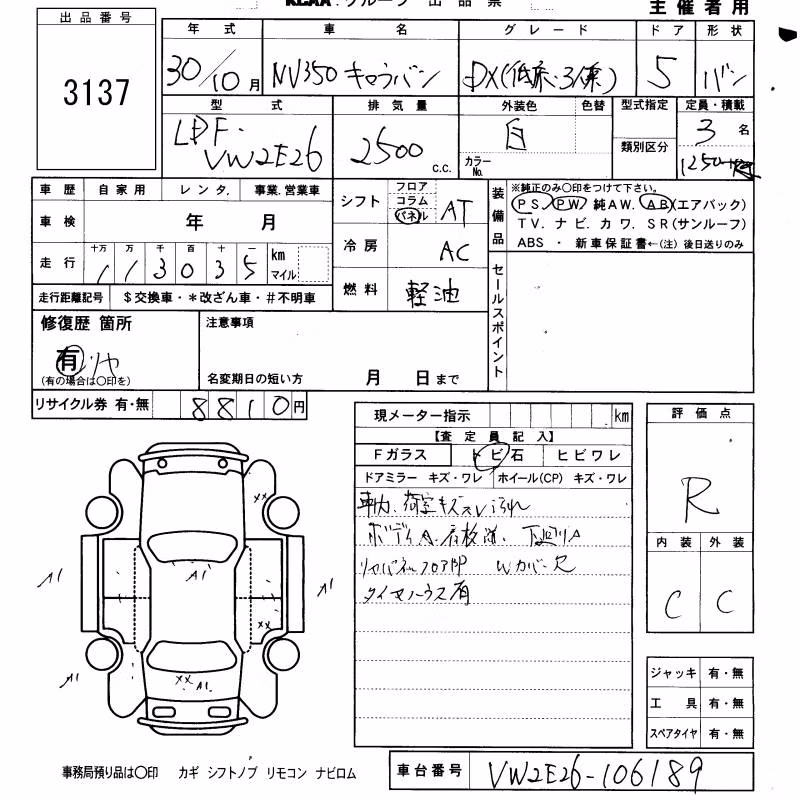 出品票
主催者用
出品番号
3137
年式 車名 グレード ドア 形状
30/10月 NV350 キャラバン DX(低床・3/6乗) 5 バン
型式 排気量 外装色 色替 型式指定 定員・積載
LDF-VW2E26 2500 c.c. 白 カラーNo. 類別区分 3名 1250 kg
車歴 自家用 レンタ. 事業.営業車
車検 年 月
走行 十万 万 千 百 十 一 km マイル
113035
走行距離記号 $交換車・*改ざん車・#不明車
シフト フロア コラム パネル AT
冷房 AC
燃料 軽油
装備品
※純正のみ〇印をつけて下さい。
PS. PW 純AW. AB(エアバック)
TV. ナビ. カワ. SR(サンルーフ)
ABS ・ 新車保証書←(注) 後日送りのみ
セールスポイント
修復歴 箇所
有 リヤ
(有の場合は〇印を)
注意事項
名変期日の短い方 月 日まで
リサイクル券 有・無 8810円
現メーター指示 km
【査定員記入】
Fガラス トビ石 ヒビワレ
ドアミラー キズ・ワレ ホイール(CP) キズ・ワレ
車内、荷室キズスレ汚れ
ボディA
リヤパネルフロア
Wカバー欠
タイヤハウス有
評価点
R
内装 外装
C C
A1
XX
A1
XX
A1
A1
XX A1
A1
ジャッキ 有・無
工具 有・無
スペアタイヤ 有・無
事務局預り品は〇印 カギ シフトノブ リモコン ナビロム
車台番号 VW2E26-106189